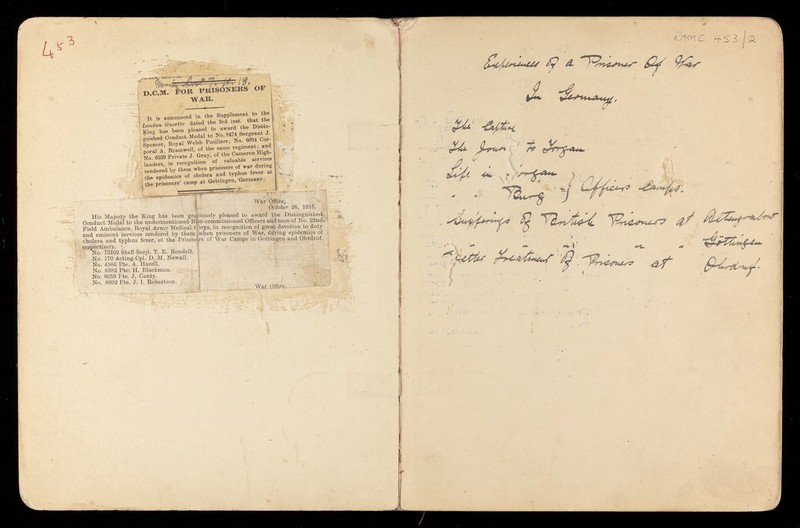 453
D.C.M. FOR PRISONERS OF
WAR.
It is announced in the Supplement to the
London Gazette dated the 3rd inst. that the
King has been pleased to award the Distin-
guished Conduct Medal to No. 8474 Sergeant J.
Spencer, Royal Welsh Fusiliers; No. 6004 Cor-
poral A. Bramwell, of the same regiment; and
No. 6539 Private J. Gray, of the Cameron High-
landers, in recognition of valuable services
rendered by them when prisoners of war during
the epidemics of cholera and typhus fever at
the prisoners' camp at Gottingen, Germany.
War Office,
October 26, 1916.
His Majesty the King has been graciously pleased to award the Distinguished
Conduct Medal to the undermentioned Non-commissioned Officers and men of No.
Field Ambulance, Royal Army Medical Corps, in recognition of great devotion to duty
and eminent services rendered by them when prisoners of War, during epidemics of
cholera and typhus fever, at the Prisoners of War Camps in Gottingen and Ohrdruf,
respectively.
No. Staff Serjt. T. E. Rondell.
No. 170 Acting-Cpl. D. M. Newall.
No. 4586 Pte. A. Hazell.
No. 8393 Pte. H. Blackman.
No. 8659 Pte. J. Canty.
No. 8802 Pte. J. I. Robertson.
War Office,
RAMC 453/2
Experiences Of a Prisoner Of War
In Germany.
The Capture
The to Torgau
Life in Torgau
" " Burg } Officers Camps.
Sufferings Of British Prisoners at
" " " " " Göttingen
Better Treatment Of Prisoners at Ohrdruf.